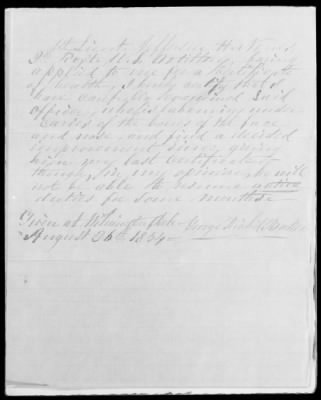 1st Lieut. Jefferson H.
3d Regt. U.S. Artillery, having
applied to me for a certificate
of health, I hereby certify that I
have carefully examined said
officer, who is labouring under
Caries of the bones of the face
and nose and find a decided
improvement since giving
him my last certificate,
though, in my opinion, he will
not be able to resume active
duties for some months.
Given at Wilmington
August 26th 1854